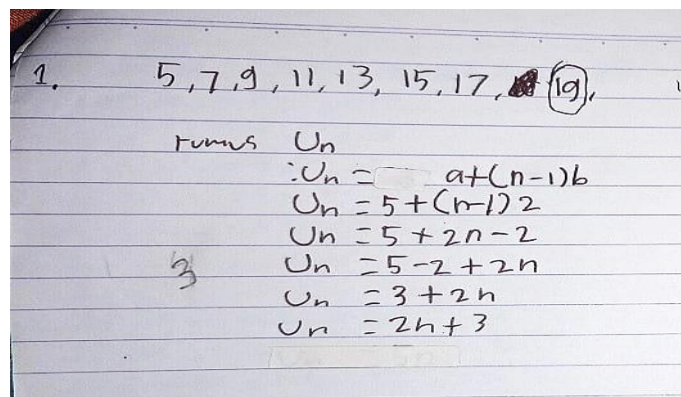 1. 5, 7, 9, 11, 13, 15, 17, 19,
rumus Un
:Un = a+(n-1)b
Un = 5+(n-1)2
Un = 5+2n-2
3 Un = 5-2+2n
Un = 3+2n
Un = 2n+3